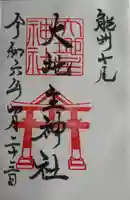 能州七尾
大地主神社
令和六年八月二十三日